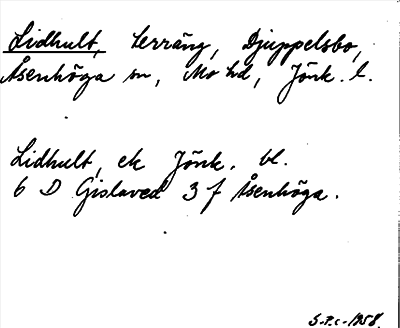 Lidhult, terräng, Djuppelsbo,
Åsenhöga sn, Mo hd, Jönk. l.
Lidhult, ek Jönk. bl.
6 D Gislaved 3 f Åsenhöga.
S.P.c. 1958.